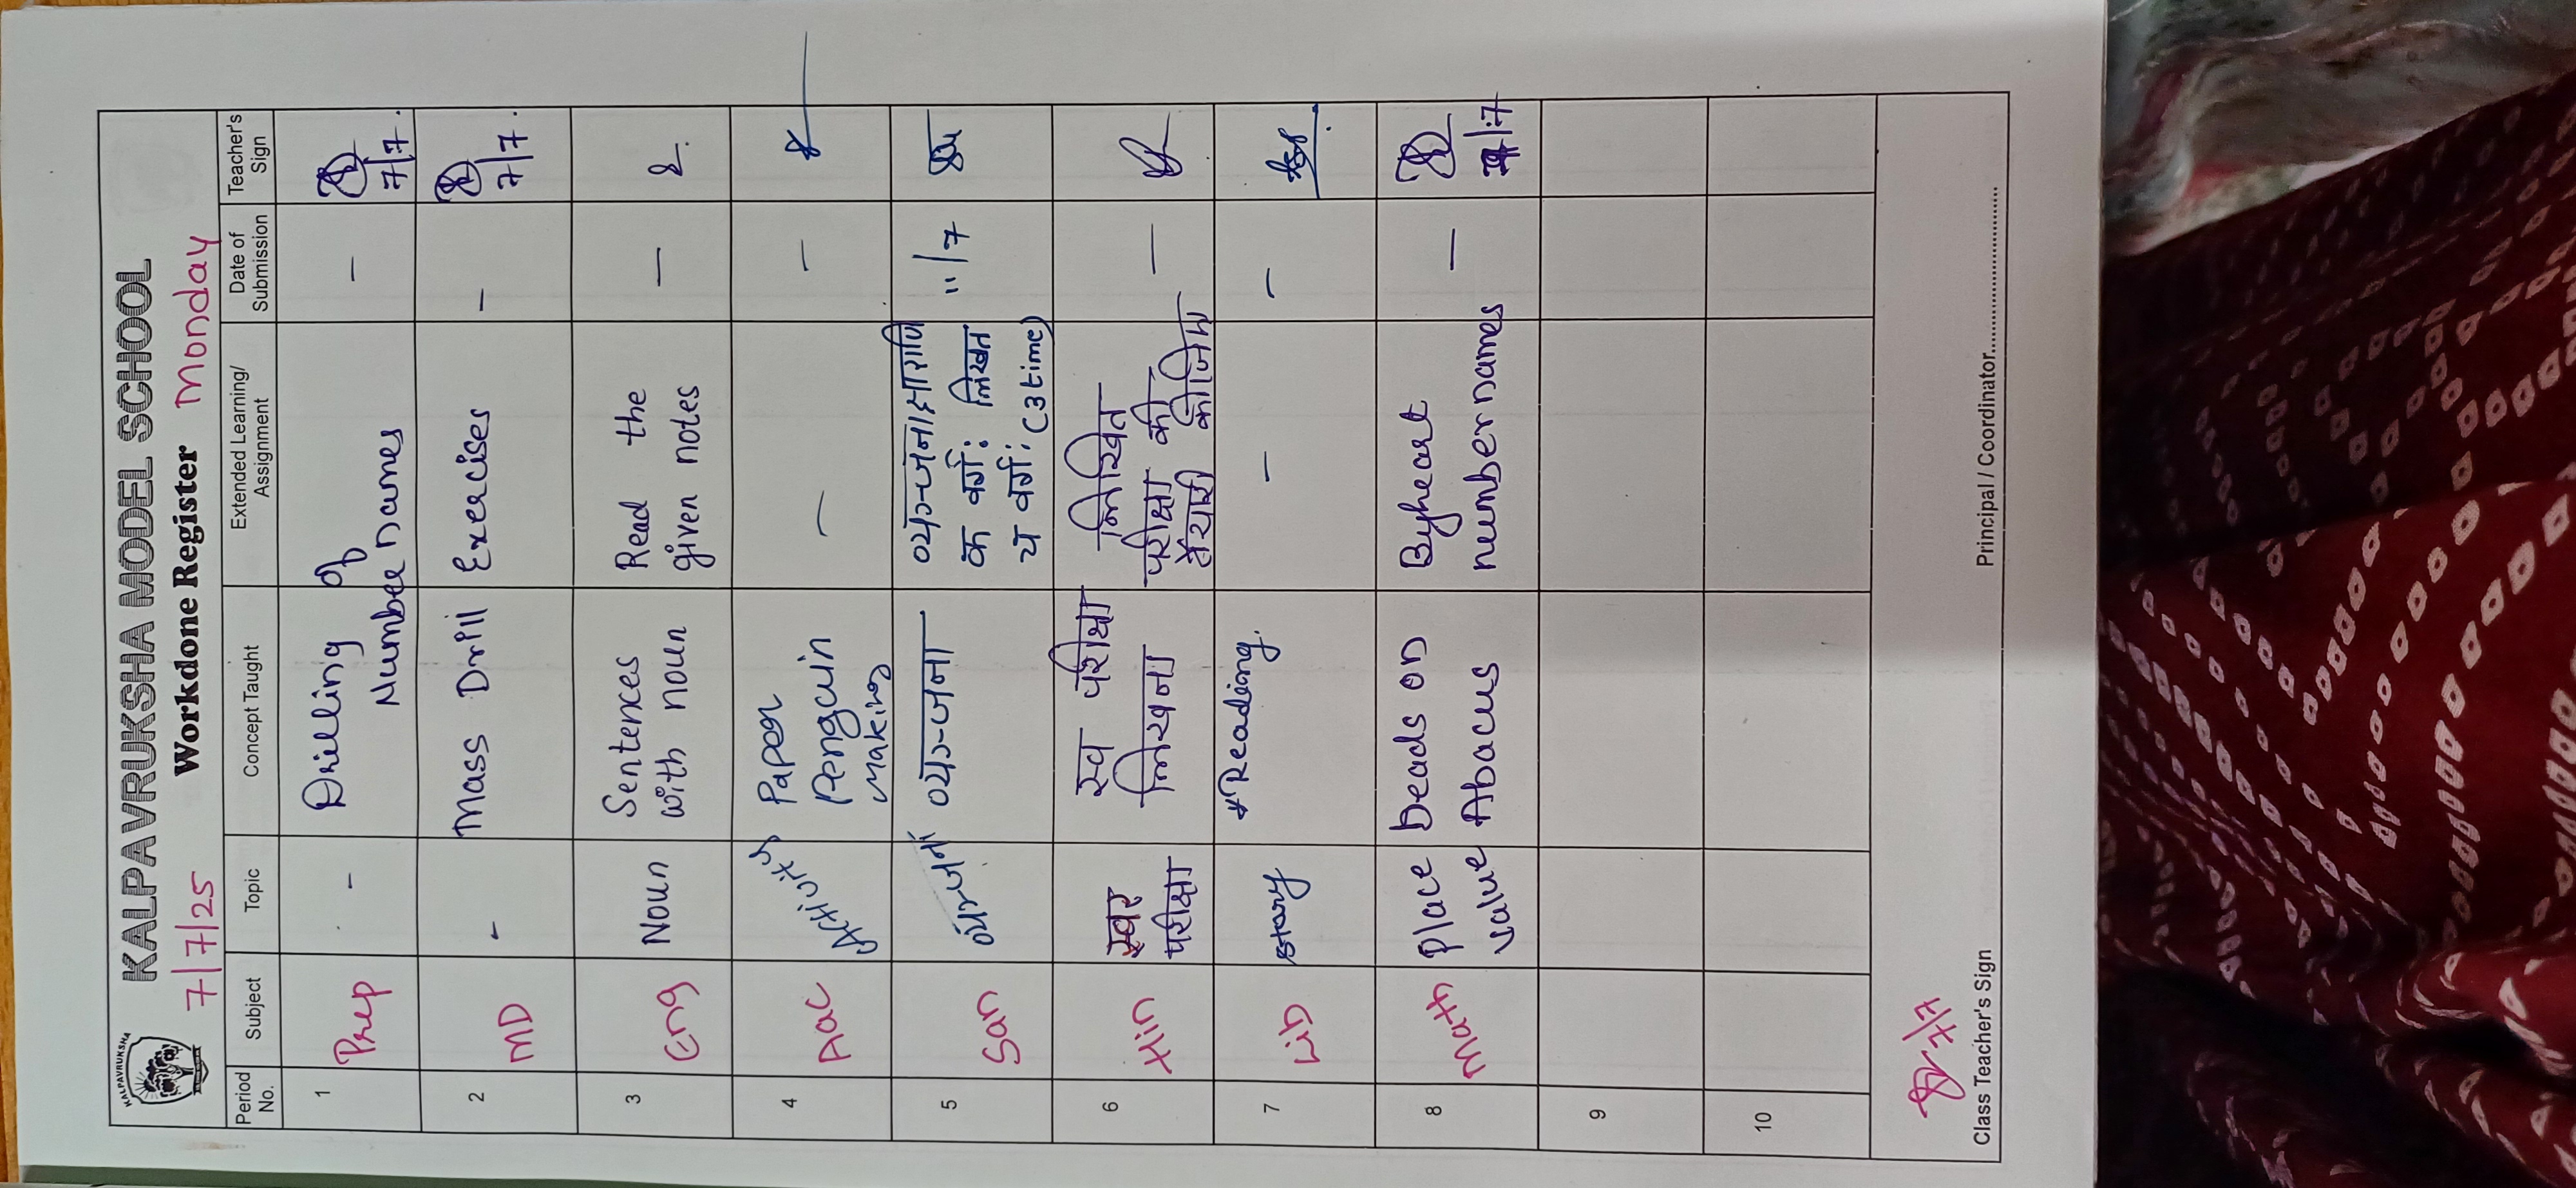 KALPAVRUKSHA
KALPAVRUKSHA MODEL SCHOOL
7/7/25 Workdone Register Monday
Period No. Subject Topic Concept Taught Extended Learning/ Assignment Date of Submission Teacher's Sign
1 Prep - Drilling of Number names - 7/7.
2 MD - Mass Drill Exercises - 7/7.
3 Eng Noun Sentences with noun Read the given notes -
4 Aac Activity Paper Penguin Making - -
5 San व्यञ्जना व्यञ्जना व्यञ्जनाक्षराणि क वर्गः लिखत य वर्गः (3 time) 11/7
6 Hin स्वर परीक्षा स्व परीक्षा लिखना लिखित परीक्षा की तैयारी कीजिए -
7 Lib story *Reading. - -
8 Math place value beads on Abacus Byheart number names - 7/7
9
10
7/7
Class Teacher's Sign Principal / Coordinator